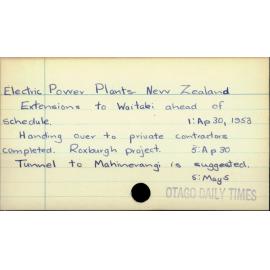 Electric Power Plants New Zealand
Extensions to Waitaki ahead of
schedule. 1: Ap 30, 1953
Handing over to private contractors
completed. Roxburgh project. 5: Ap 30
Tunnel to Mahinerangi is suggested.
5: May 5
OTAGO DAILY TIMES